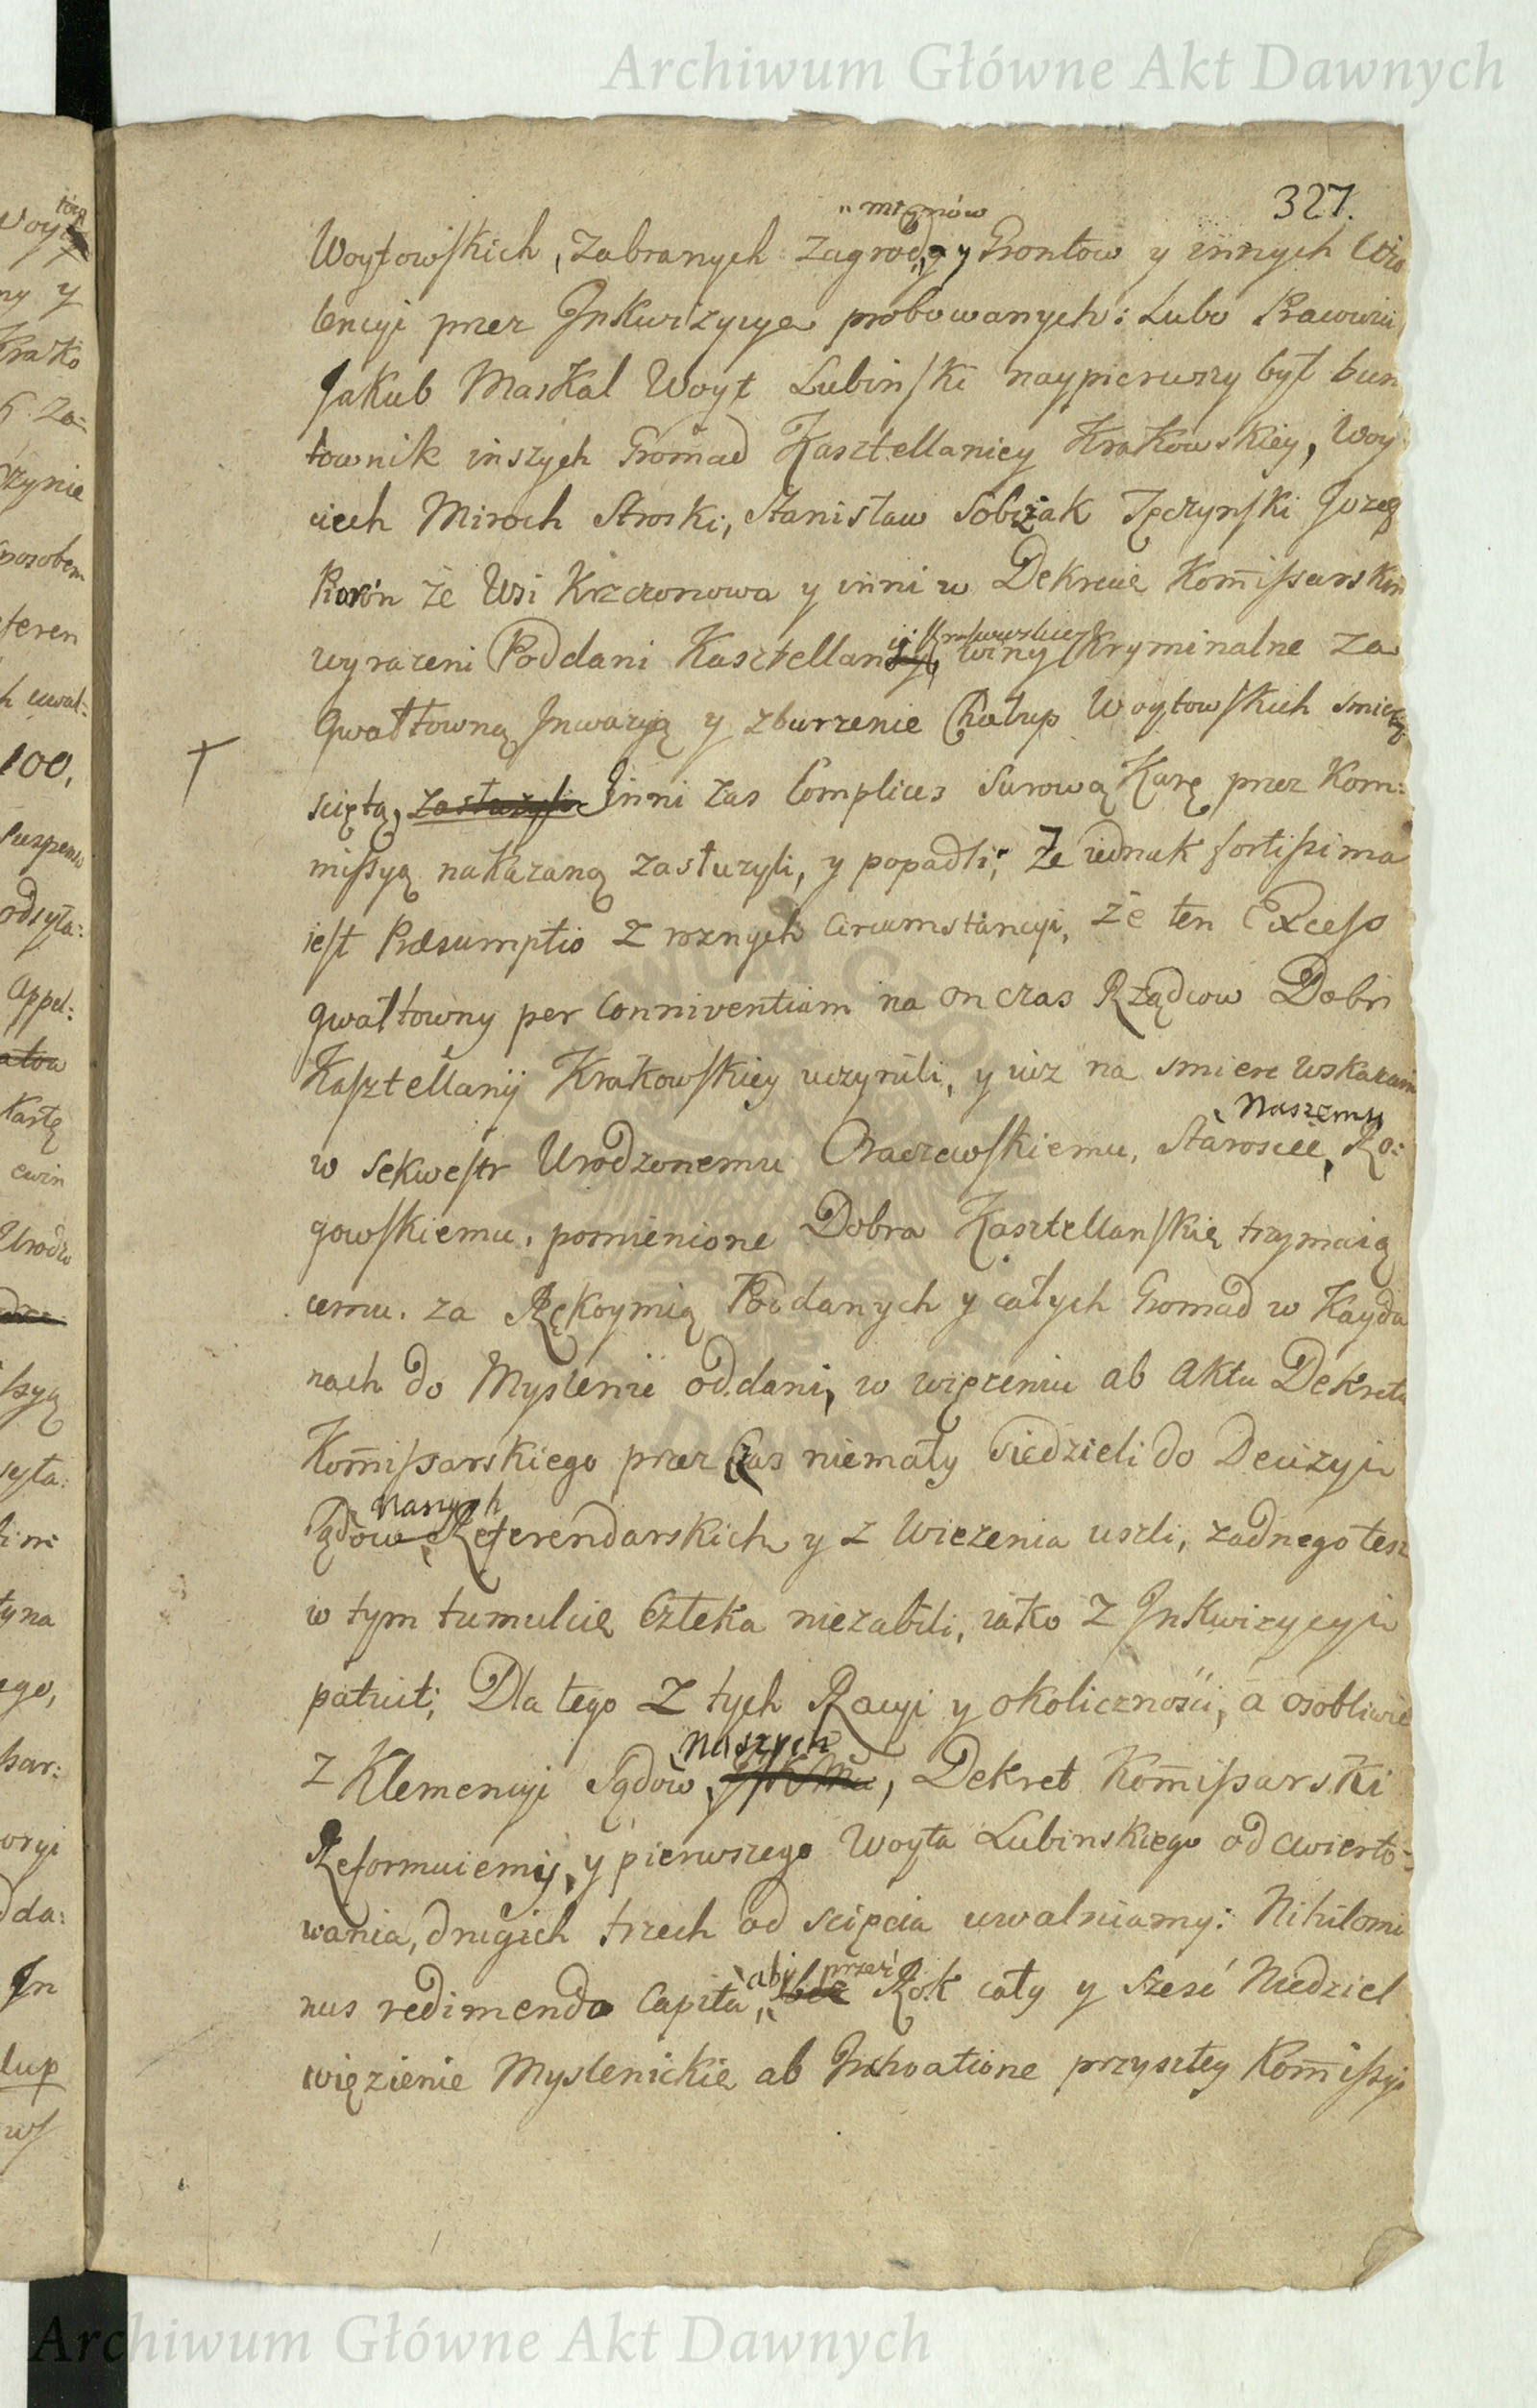 Archiwum Główne Akt Dawnych
327.
młynów
Woytowskich, zabranych zagrod, y Grontow y innych Wio
lencyi przez Inkwizycye probowanych: Lubo Pracowici
Jakub Maskal Woyt Lubinski naypierwszy był bun
townik inszych Gromad Kasztellaniey Krakowskiey, Woy
ciech Miroch Stroski, Stanisław Sobczak Tęczynski Jozeg
Pioron ze Wsi Krzczonowa y inni w Dekrecie Kommissarskim
wyrazeni Poddani Kasztellan winy Kryminalne za
gwałtowną Inwazyą y zburzenie Chałup Woytowskich smiercią
scięta, zasłuzyli Inni zas Complices surową Karę przez Kom:
missyą nakazaną zasłuzyli, y popadli; Ze iednak fortissima
iest Præsumptio z roznych Circumstancyi, ze ten Excess
gwałtowny per Conniventiam na on czas Rządcow Dobr
Kasztellanij Krakowskiey uczynili, y iuz na smierc wskazani
Naszemu
w Sekwestr Urodzonemu Oraczewskiemu, Staroscie, Ro:
gowskiemu, pomienione Dobra Kasztellanskie trzymaią
cemu, za Rękoymią Poddanych y całych Gromad w Kayda
nach do Myslenic oddani, w więzeniu ab Aktu Dekretu
Kommissarskiego przez Czas niemały siedzieli do Decizyi
Naszych
Sądow Referendarskich y z Wiezenia uszli, zadnego tesz
w tym tumulcie Człeka niezabili, iako z Inkwizycyi
patuit; Dla tego z tych Racyi y okolicznosci, a osobliwie
Naszych
z Klemencyi Sądow, Dekret Kommissarski
Reformuiemy, y pierwszego Woyta Lubinskiego od cwierto=
wania, drugich trzech od scięcia uwalniamy: Nihilomi
aby przez
nus redimendo Capita, Rok cały y szesć Niedziel
więzienie Myslenickie ab Inchoatione przyszłey Kommissyi
Archiwum Główne Akt Dawnych